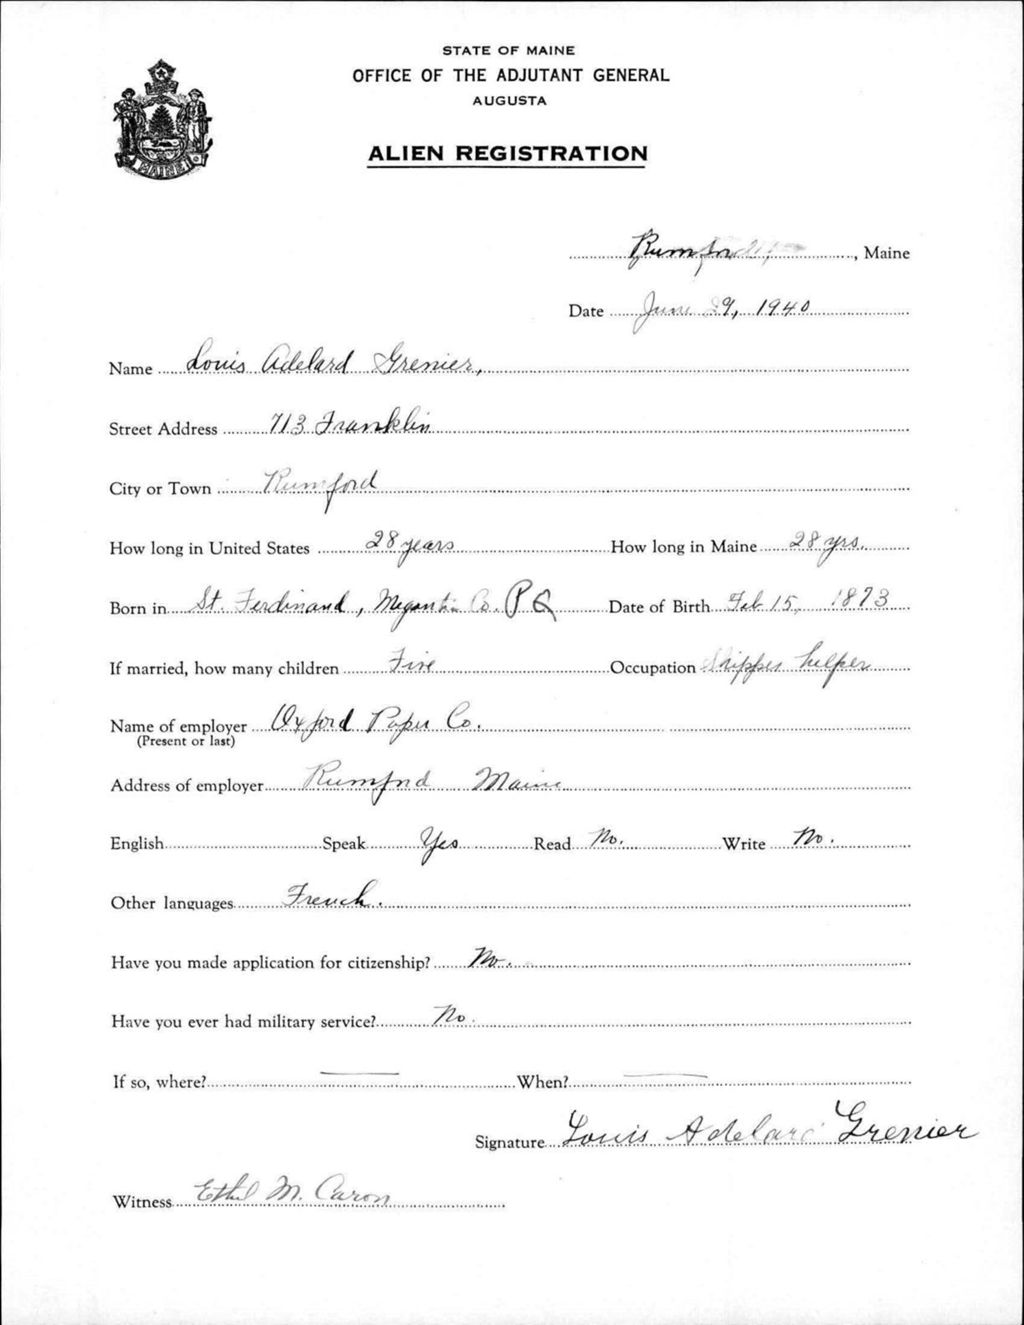 STATE OF MAINE
OFFICE OF THE ADJUTANT GENERAL
AUGUSTA
ALIEN REGISTRATION
MAINE
Rumford, Maine
Date June 29, 1940
Name Louis Adelard Grenier,
Street Address 713 Franklin
City or Town Rumford
How long in United States 28 years How long in Maine 28 yrs.
Born in St. Ferdinand, Megantic Co. P Q Date of Birth Feb 15, 1873
If married, how many children Five Occupation helper
Name of employer Oxford Paper Co.
(Present or last)
Address of employer Rumford Maine
English Speak Yes Read No. Write No.
Other languages French.
Have you made application for citizenship? No.
Have you ever had military service? No.
If so, where? — When? —
Signature Louis Adelard Grenier
Witness Ethel M. Caron